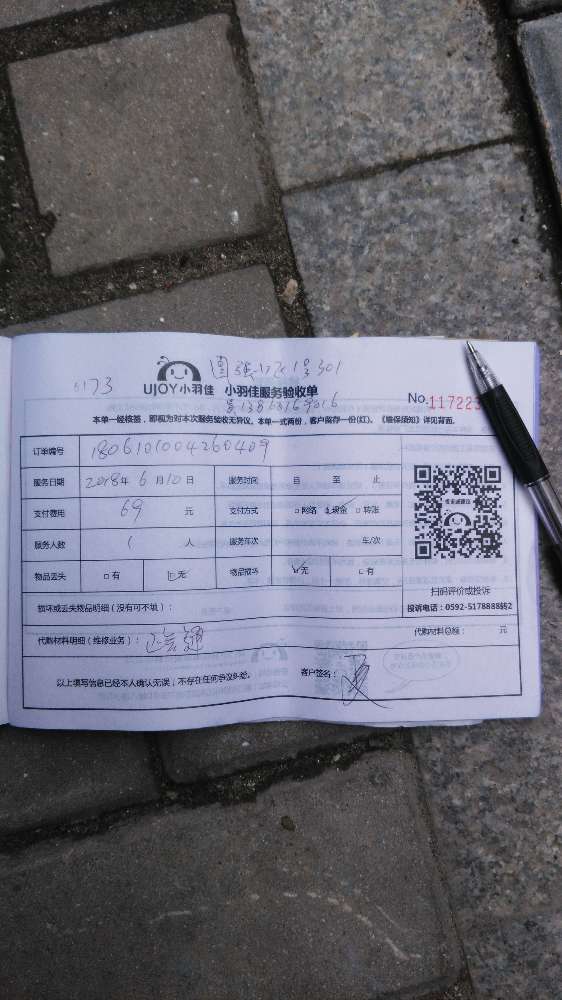 6173
UJOY小羽佳 小羽佳服务验收单
No.117223
本单一经核签，即视为对本次服务验收无异议。本单一式两份，客户留存一份(红)。《赔保须知》详见背面。
订单编号
服务日期 2018年 6月 10日 服务时间 自 至 止
支付费用 69 元 支付方式 □网络 □现金 □转账
服务人数 1 人 服务车次 车/次
物品丢失 □有 □无 物品损坏 □无 □有
扫码评价或投诉
投诉电话：0592-5178888转2
损坏或丢失物品明细（没有可不填）：
代购材料明细（维修业务）： 代购材料总额： 元
以上填写信息已经本人确认无误，不存在任何争议纠纷。 客户签名：